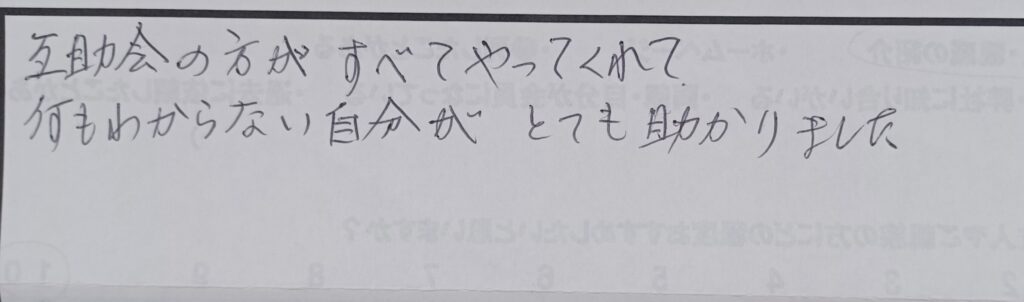 互助会の方が すべてやってくれて
何もわからない自分が とても助かりました